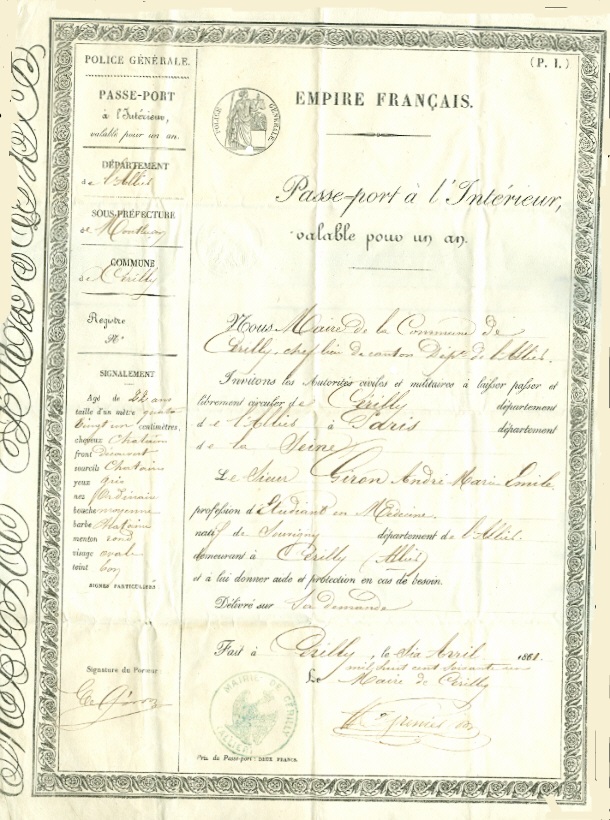 POLICE GÉNÉRALE.
PASSE-PORT
à l'Intérieur,
valable pour un an.
DÉPARTEMENT
de l'Allier
SOUS-PRÉFECTURE
de
COMMUNE
de Cérilly
Registre
N°
SIGNALEMENT
Agé de 22 ans
taille d'un mètre quatre
vingt un centimètres,
cheveux Chatain
front découvert
sourcils Chatains
yeux gris
nez ordinaire
bouche moyenne
barbe Chataine
menton rond
visage ovale
teint bon
SIGNES PARTICULIERS
Signature du Porteur
(P. I.)
POLICE GÉNÉRALE
EMPIRE FRANÇAIS.
Passe-port à l'Intérieur,
valable pour un an.
Nous Maire de la Commune de
Cérilly, chef lieu de canton Dépt. de l'Allier.
Invitons les Autorités civiles et militaires à laisser passer et
librement circuler de Cérilly département
de l'Allier à Paris département
de la Seine
Le Sieur Giron André Marie Emile
profession d'Etudiant en Médecine.
natif de Souvigny département de l'Allier.
demeurant à Cérilly (Allier)
et à lui donner aide et protection en cas de besoin.
Délivré sur Sa demande
Fait à Cérilly, le Six Avril 1861.
mil huit cent soixante un
Le Maire de Cérilly
MAIRIE DE CÉRILLY
ALLIER
Prix du Passe-port : DEUX FRANCS.